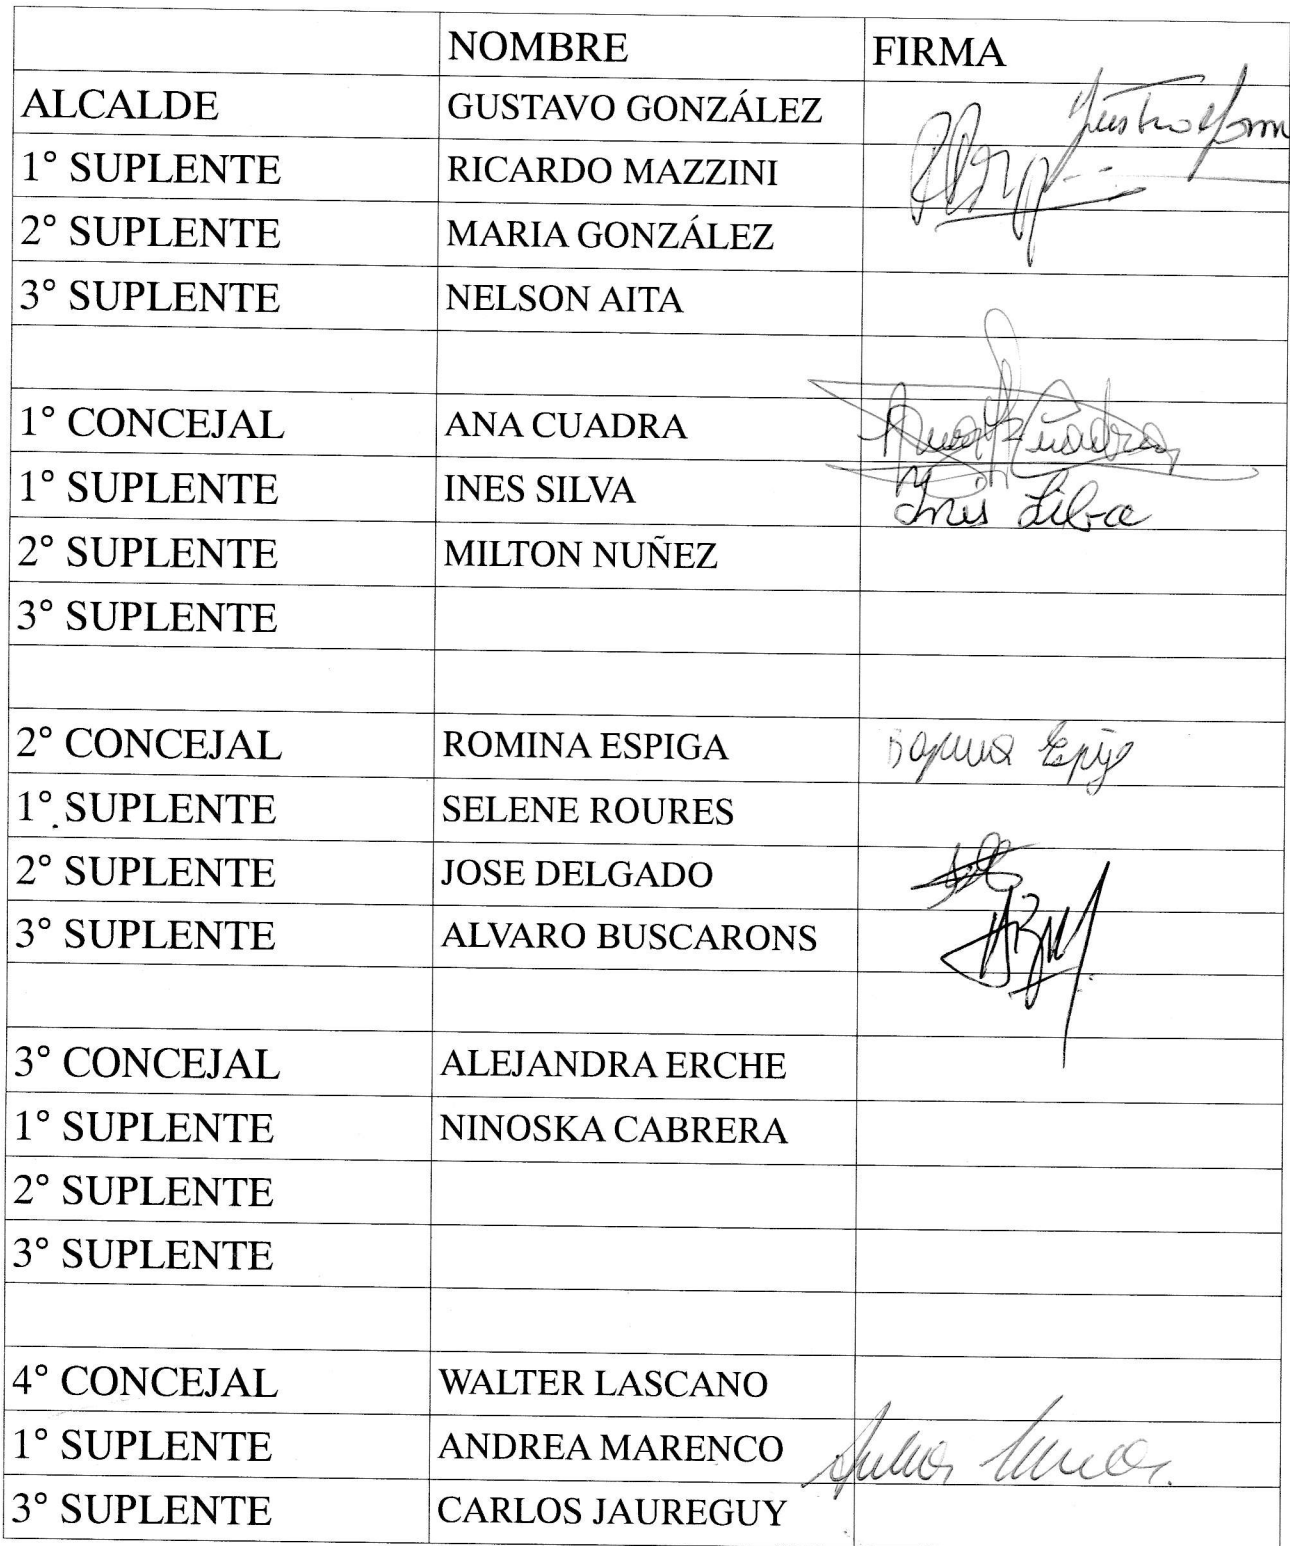 NOMBRE FIRMA
ALCALDE GUSTAVO GONZÁLEZ
1° SUPLENTE RICARDO MAZZINI
2° SUPLENTE MARIA GONZÁLEZ
3° SUPLENTE NELSON AITA
1° CONCEJAL ANA CUADRA Cuadra
1° SUPLENTE INES SILVA Ines Silva
2° SUPLENTE MILTON NUÑEZ
3° SUPLENTE
2° CONCEJAL ROMINA ESPIGA
1° SUPLENTE SELENE ROURES
2° SUPLENTE JOSE DELGADO
3° SUPLENTE ALVARO BUSCARONS
3° CONCEJAL ALEJANDRA ERCHE
1° SUPLENTE NINOSKA CABRERA
2° SUPLENTE
3° SUPLENTE
4° CONCEJAL WALTER LASCANO
1° SUPLENTE ANDREA MARENCO
3° SUPLENTE CARLOS JAUREGUY